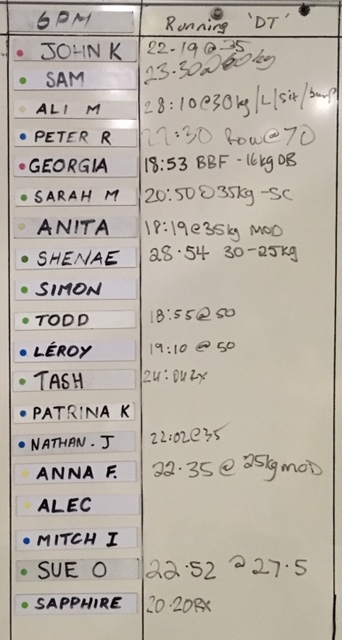 6PM Running 'DT'
JOHN K 22-19@35
SAM 23.30@60kg
ALI M 28:10@30kg/L/sit/
PETER R 22:30 Row@70
GEORGIA 18:53 BBF - 16kg DB
SARAH M 20:50@35kg -SC
ANITA 18:19@35kg MOD
SHENAE 28.54 30-25kg
SIMON
TODD 18:55@50
LÉROY 19:10 @ 50
TASH
PATRINA K
NATHAN. J 22:02@35
ANNA F. 22.35 @ 25kg MOD
ALEC
MITCH I
SUE O 22.52 @ 27.5
SAPPHIRE 20.20RX